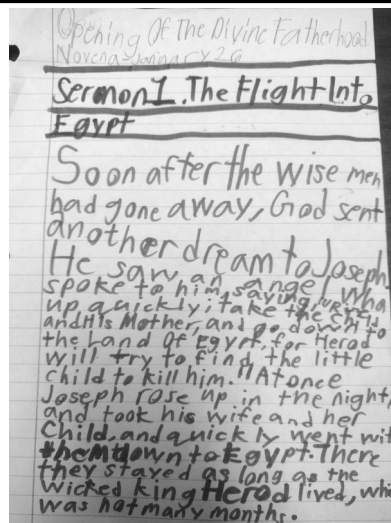 Opening Of The Divine Fatherhood
Novena-January 26
Sermon 1. The Flight Into
Egypt
Soon after the wise men
had gone away, God sent
another dream to Joseph.
He saw an angel who
spoke to him, saying, "Rise
up quickly; take the child
and His Mother, and go down to
the Land Of Egypt, for Herod
will try to find the little
child to kill him." At once
Joseph rose up in the night,
and took his wife and her
Child, and quickly went wit
them down to Egypt. There
they stayed as long as the
wicked king Herod lived, whi
was not many months.